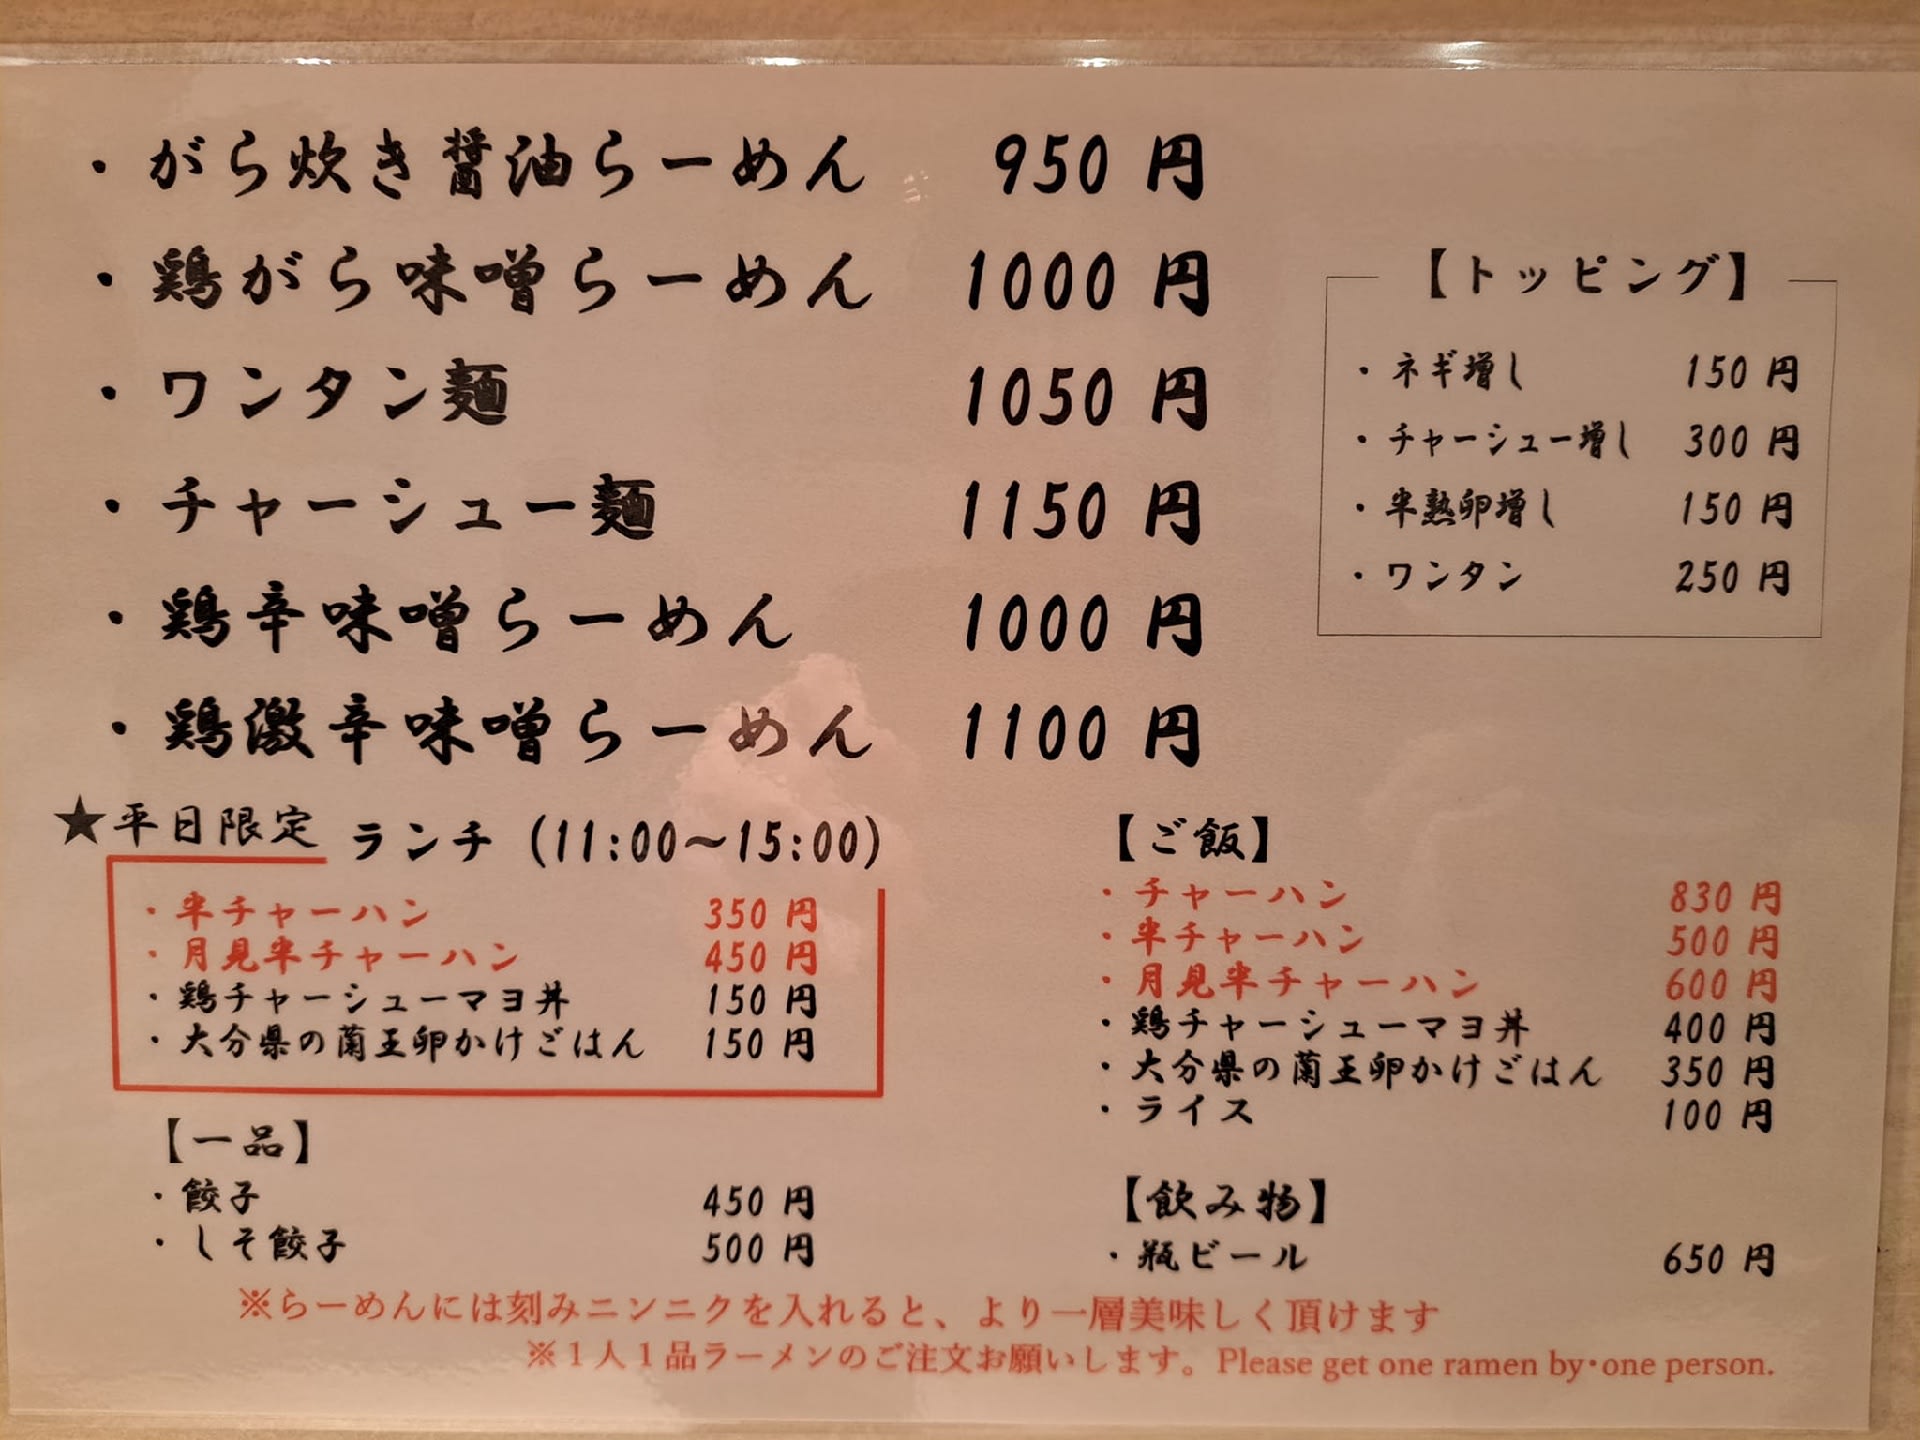 ・がら炊き醤油らーめん 950円
・鶏がら味噌らーめん 1000円
・ワンタン麺 1050円
・チャーシュー麺 1150円
・鶏辛味噌らーめん 1000円
・鶏激辛味噌らーめん 1100円
【トッピング】
・ネギ増し 150円
・チャーシュー増し 300円
・半熟卵増し 150円
・ワンタン 250円
★平日限定 ランチ (11:00～15:00)
・半チャーハン 350円
・月見半チャーハン 450円
・鶏チャーシューマヨ丼 150円
・大分県の蘭王卵かけごはん 150円
【ご飯】
・チャーハン 830円
・半チャーハン 500円
・月見半チャーハン 600円
・鶏チャーシューマヨ丼 400円
・大分県の蘭王卵かけごはん 350円
・ライス 100円
【一品】
・餃子 450円
・しそ餃子 500円
【飲み物】
・瓶ビール 650円
※らーめんには刻みニンニクを入れると、より一層美味しく頂けます
※１人１品ラーメンのご注文お願いします。Please get one ramen by・one person.